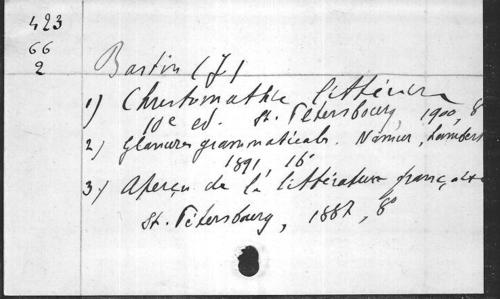 423
66
2
Bastin (J)
1) Chrestomathie littéraire
10e ed. St. Pétersbourg, 1900, 8
2) Glanures grammaticales. Namur, Lambert
1891 16°
3) Aperçu de la littérature française
St. Pétersbourg, 1887, 8°